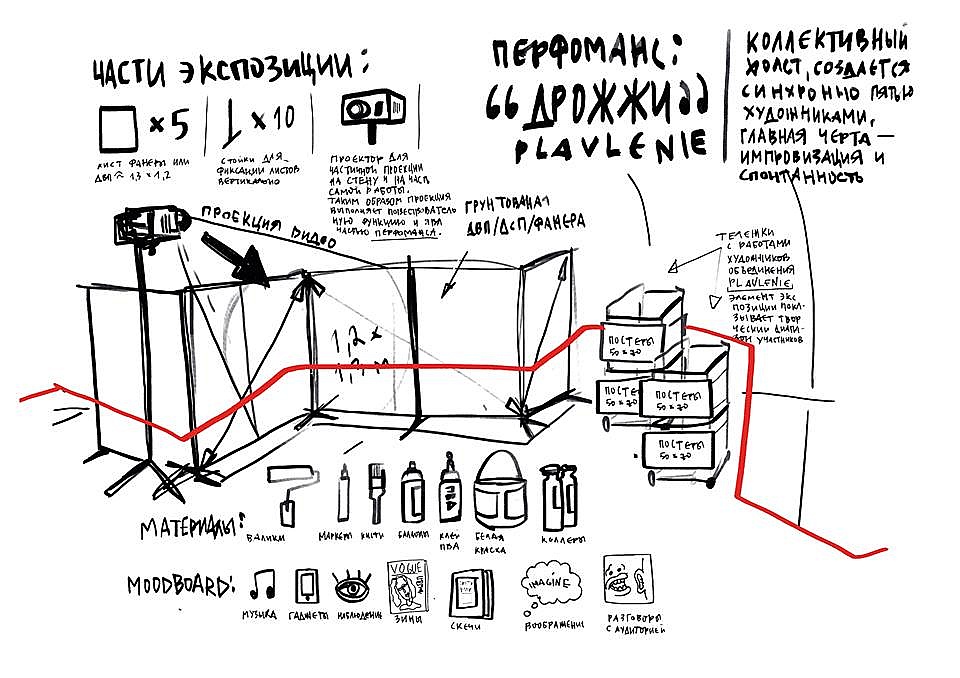 ЧАСТИ ЭКСПОЗИЦИИ:
× 5
ЛИСТ ФАНЕРЫ ИЛИ
ДВП ≈ 1,3 × 1,2
× 10
СТОЙКИ ДЛЯ
ФИКСАЦИИ ЛИСТОВ
ВЕРТИКАЛЬНО
ПРОЕКТОР ДЛЯ
ЧАСТИЧНОЙ ПРОЕКЦИИ
НА СТЕНУ И НА ЧАСТЬ
САМОЙ РАБОТЫ.
ТАКИМ ОБРАЗОМ ПРОЕКЦИЯ
ВЫПОЛНЯЕТ ПОВЕСТВОВАТЕЛЬ
НУЮ ФУНКЦИЮ И ЯВЛ
ЧАСТЬЮ ПЕРФОМАНСА.
ПЕРФОМАНС:
“ДРОЖЖИ”
PLAVLENIE
КОЛЛЕКТИВНЫЙ
ХОЛСТ, СОЗДАЕТСЯ
СИНХРОННО ПЯТЬЮ
ХУДОЖНИКАМИ,
ГЛАВНАЯ ЧЕРТА —
ИМПРОВИЗАЦИЯ И
СПОНТАННОСТЬ
ПРОЕКЦИЯ ВИДЕО
ГРУНТОВАНАЯ
ДВП/ДСП/ФАНЕРА
1,2 ×
1,3 м
ТЕЛЕЖКИ
С РАБОТАМИ
ХУДОЖНИКОВ
ОБЪЕДИНЕНИЯ
PLAVLENIE,
ЭЛЕМЕНТ ЭКС
ПОЗИЦИИ ПОКА-
ЗЫВАЕТ ТВОР
ЧЕСКИЙ ДИАПА-
ЗОН УЧАСТНИКОВ
ПОСТЕРЫ
50 × 70
ПОСТЕ
50 × 70
ПОСТЕРЫ
50 × 70
ПОСТЕРЫ
50 × 70
МАТЕРИАЛЫ:
ВАЛИКИ
МАРКЕРЫ
КИСТИ
БАЛЛОНЫ
ПВА
КЛЕЙ
ПВА
БЕЛАЯ
КРАСКА
КОЛЛЕРЫ
MOODBOARD:
МУЗЫКА
ГАДЖЕТЫ
НАБЛЮДЕНИЕ
VOGUE
ЗИНЫ
СКЕЧИ
IMAGINE
ВООБРАЖЕНИЕ
РАЗГОВОРЫ
С АУДИТОРИЕЙ